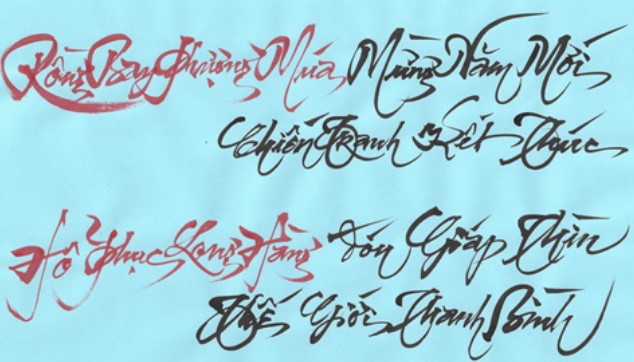 Rồng Bay Phượng Múa Mừng Năm Mới
Chiến Tranh Kết Thúc
Hổ Phục Long Hàng Đón Giáp Thìn
Thế Giới Thanh Bình